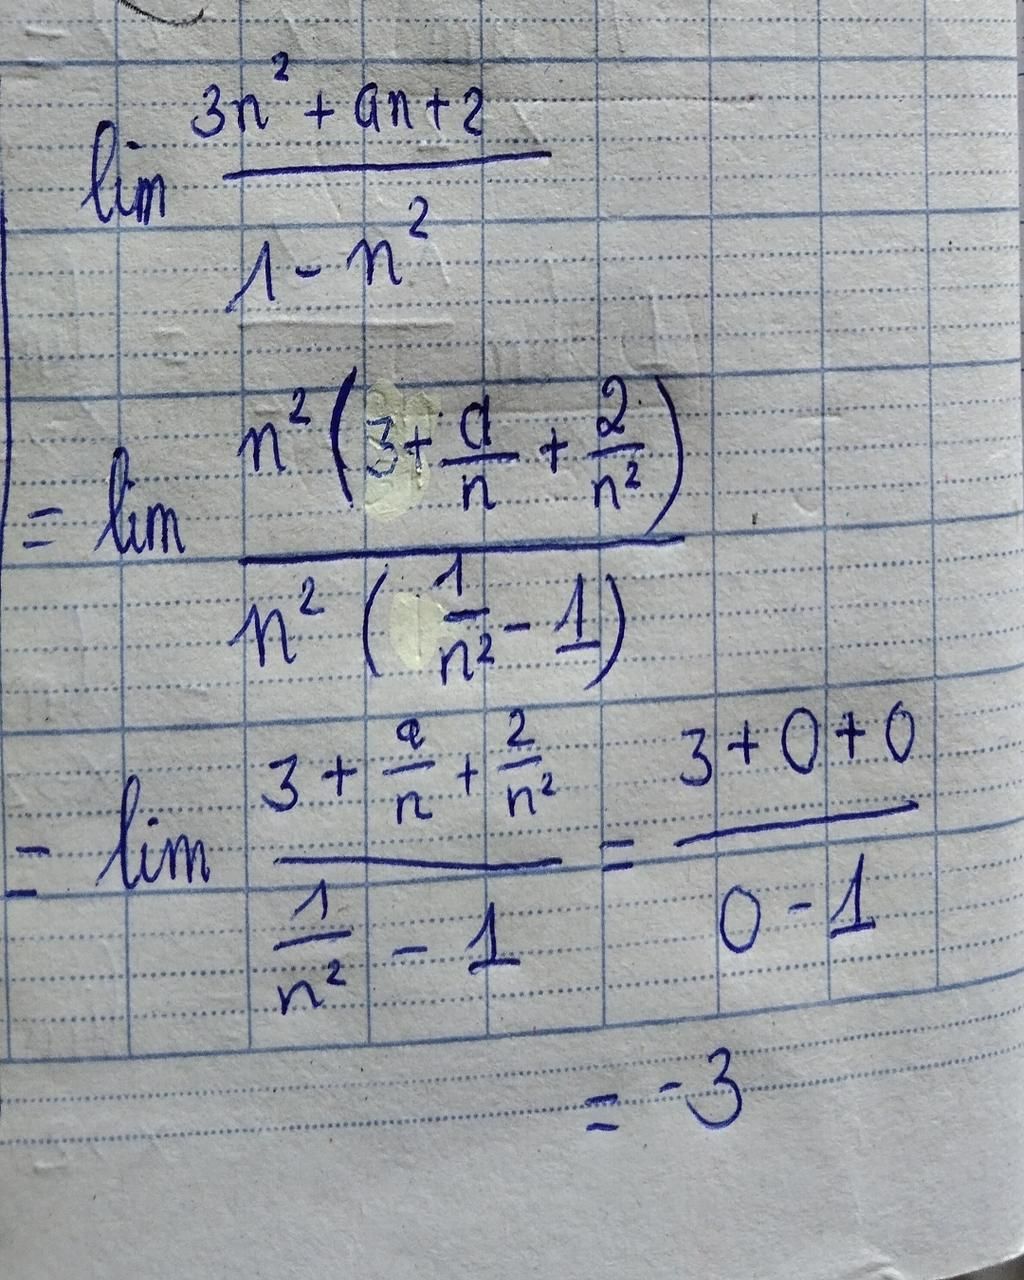 lim (3n² + an + 2) / (1 - n²)
= lim n²(3 + a/n + 2/n²) / n²(1/n² - 1)
= lim (3 + a/n + 2/n²) / (1/n² - 1) = (3 + 0 + 0) / (0 - 1)
= -3